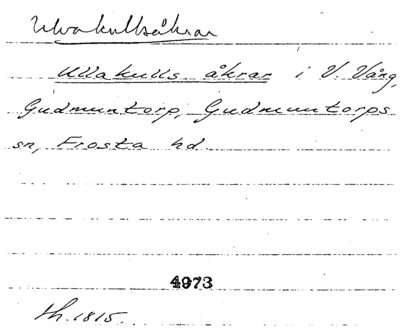 Ulvakullsåkrar
Ullakulls åkrar i V. Vång,
Gudmuntorp, Gudmuntorps
sn, Frosta hd
4973
Sh. 1815.